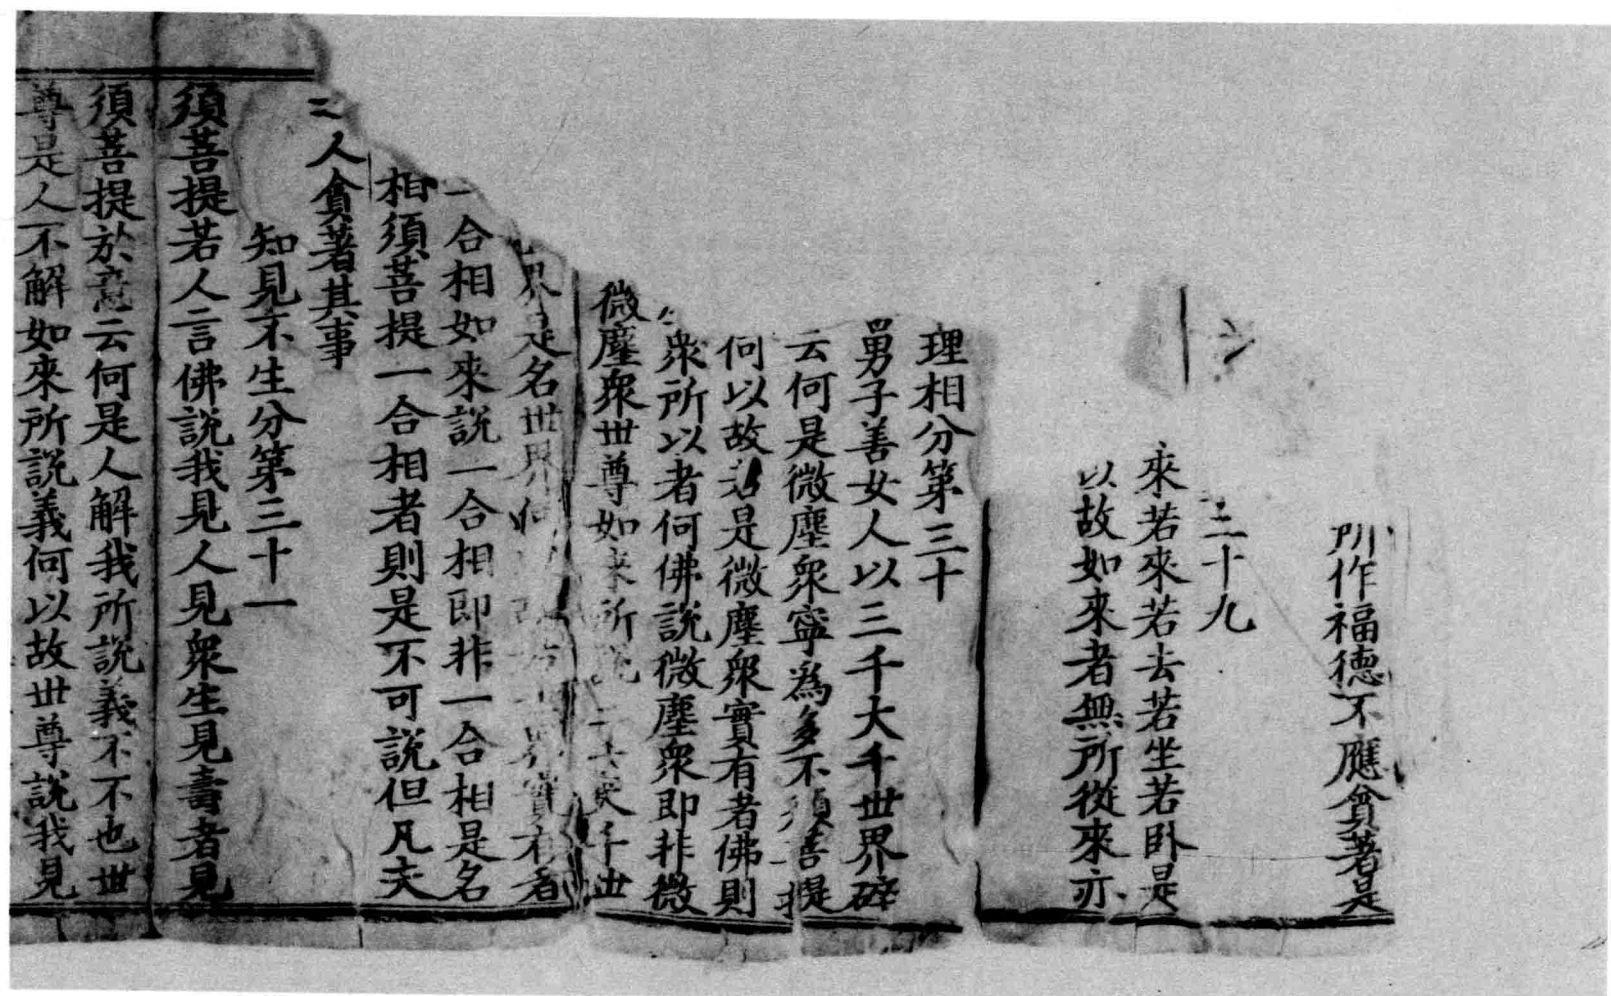 所作福德不應貪著是
三十九
來若來若去若坐若卧是
以故如來者無所從來亦
理相分第三十
男子善女人以三千大千世界碎
云何是微塵衆寧爲多不須菩提
何以故若是微塵衆實有者佛則
衆所以者何佛説微塵衆即非微
微塵衆世尊如来所説三千大千世
界是名世界何界實有者
一合相如来説一合相即非一合相是名
相須菩提一合相者則是不可説但凡夫
之人貪著其事
知見不生分第三十一
須菩提若人言佛説我見人見衆生見壽者見
須菩提於意云何是人解我所説義不不也世
尊是人不解如來所説義何以故世尊説我見